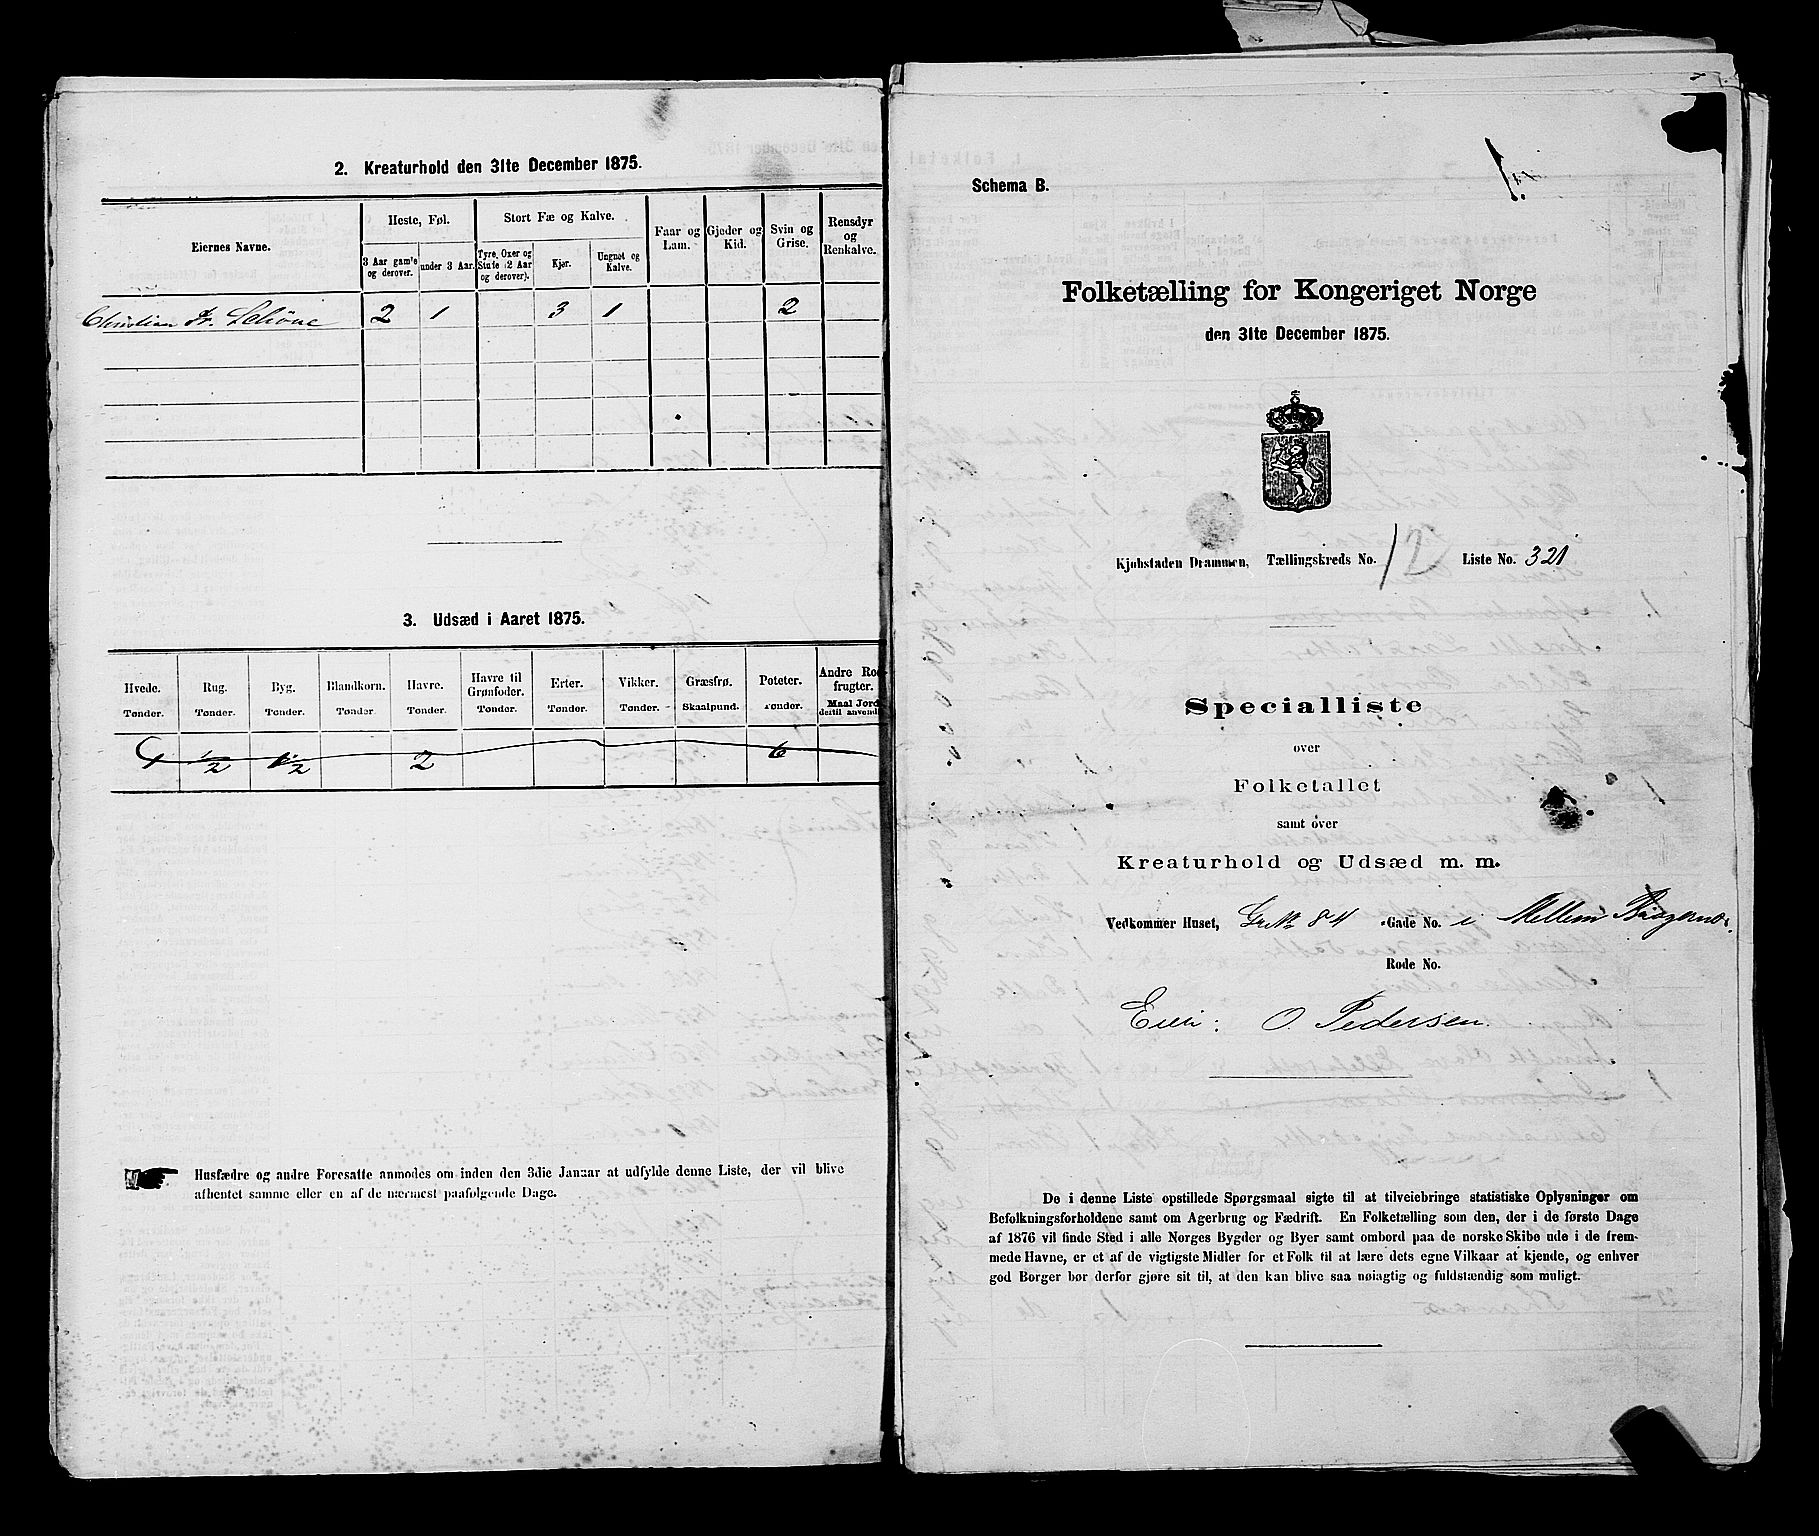 2. Kreaturhold den 31te December 1875.
Eiernes Navne.
Heste, Føl.
Stort Fæ og Kalve.
Faar og Lam.
Gjeder og Kid.
Svin og Grise.
Rensdyr og Renkalve.
3 Aar gaml's og derover.
under 3 Aar.
Tyre, Oxer og Stude (2 Aar og derover).
Kjør.
Ungnøt og Kalve.
Christian Fr. Schöne 2 1 3 1 2
3. Udsæd i Aaret 1875.
Hvede. Rug. Byg. Blandkorn. Havre. Havre til Grønfoder. Erter. Vikker. Græsfrø. Poteter. Andre Rodfrugter.
Tønder. Tønder. Tønder. Tønder. Tønder. Tønder. Tønder. Tønder. Skaalpund. Tønder. Maal Jord dertil anvendt
1/2 2 6
Husfædre og andre Foresatte anmodes om inden den 3die Januar at udfylde denne Liste, der vil blive
afhentet samme eller en af de nærmest paafølgende Dage.
Schema B.
Folketælling for Kongeriget Norge
den 31te December 1875.
Kjøbstaden Drammen, Tællingskreds No. 12 Liste No. 321
Specialliste
over
Folketallet
samt over
Kreaturhold og Udsæd m. m.
Vedkommer Huset, Gr. № 84 Gade No. i Mellem Bragernes.
Rode No.
Eier: O. Pedersen.
De i denne Liste opstillede Spørgsmaal sigte til at tilveiebringe statistiske Oplysninger om
Befolkningsforholdene samt om Agerbrug og Fædrift. En Folketælling som den, der i de første Dage
af 1876 vil finde Sted i alle Norges Bygder og Byer samt ombord paa de norske Skibe ude i de frem-
mede Havne, er et af de vigtigste Midler for et Folk til at lære dets egne Vilkaar at kjende, og enhver
god Borger bør derfor gjøre sit til, at den kan blive saa nøiagtig og fuldstændig som muligt.